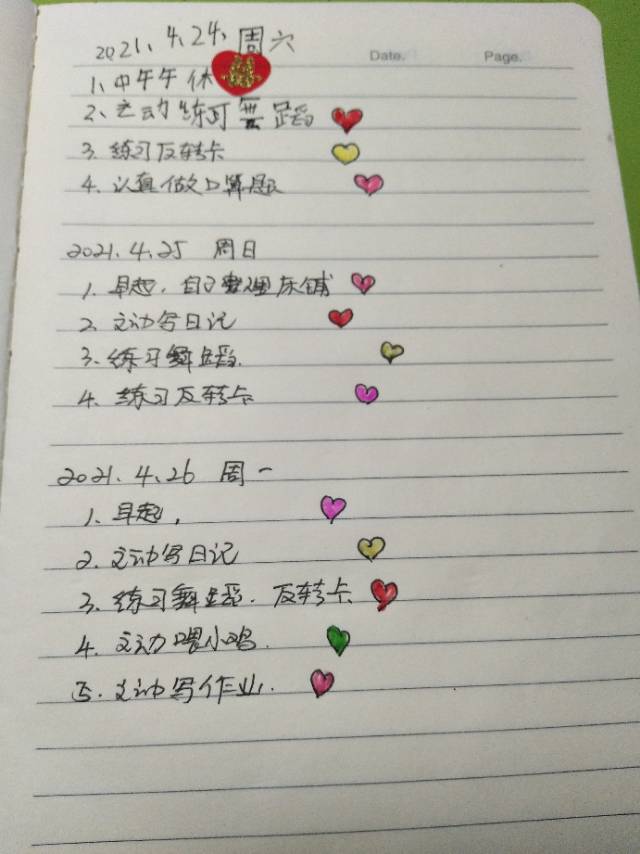 2021.4.24.周六
Date. Page.
1、中午午休
2、主动练习舞蹈
3. 练习反转卡
4. 认真做口算题
2021.4.25 周日
1. 早起,自己整理床铺
2. 主动写日记
3. 练习舞蹈.
4. 练习反转卡
2021.4.26 周一
1. 早起,
2. 主动写日记
3. 练习舞蹈. 反转卡
4. 主动喂小鸡.
五. 主动写作业.